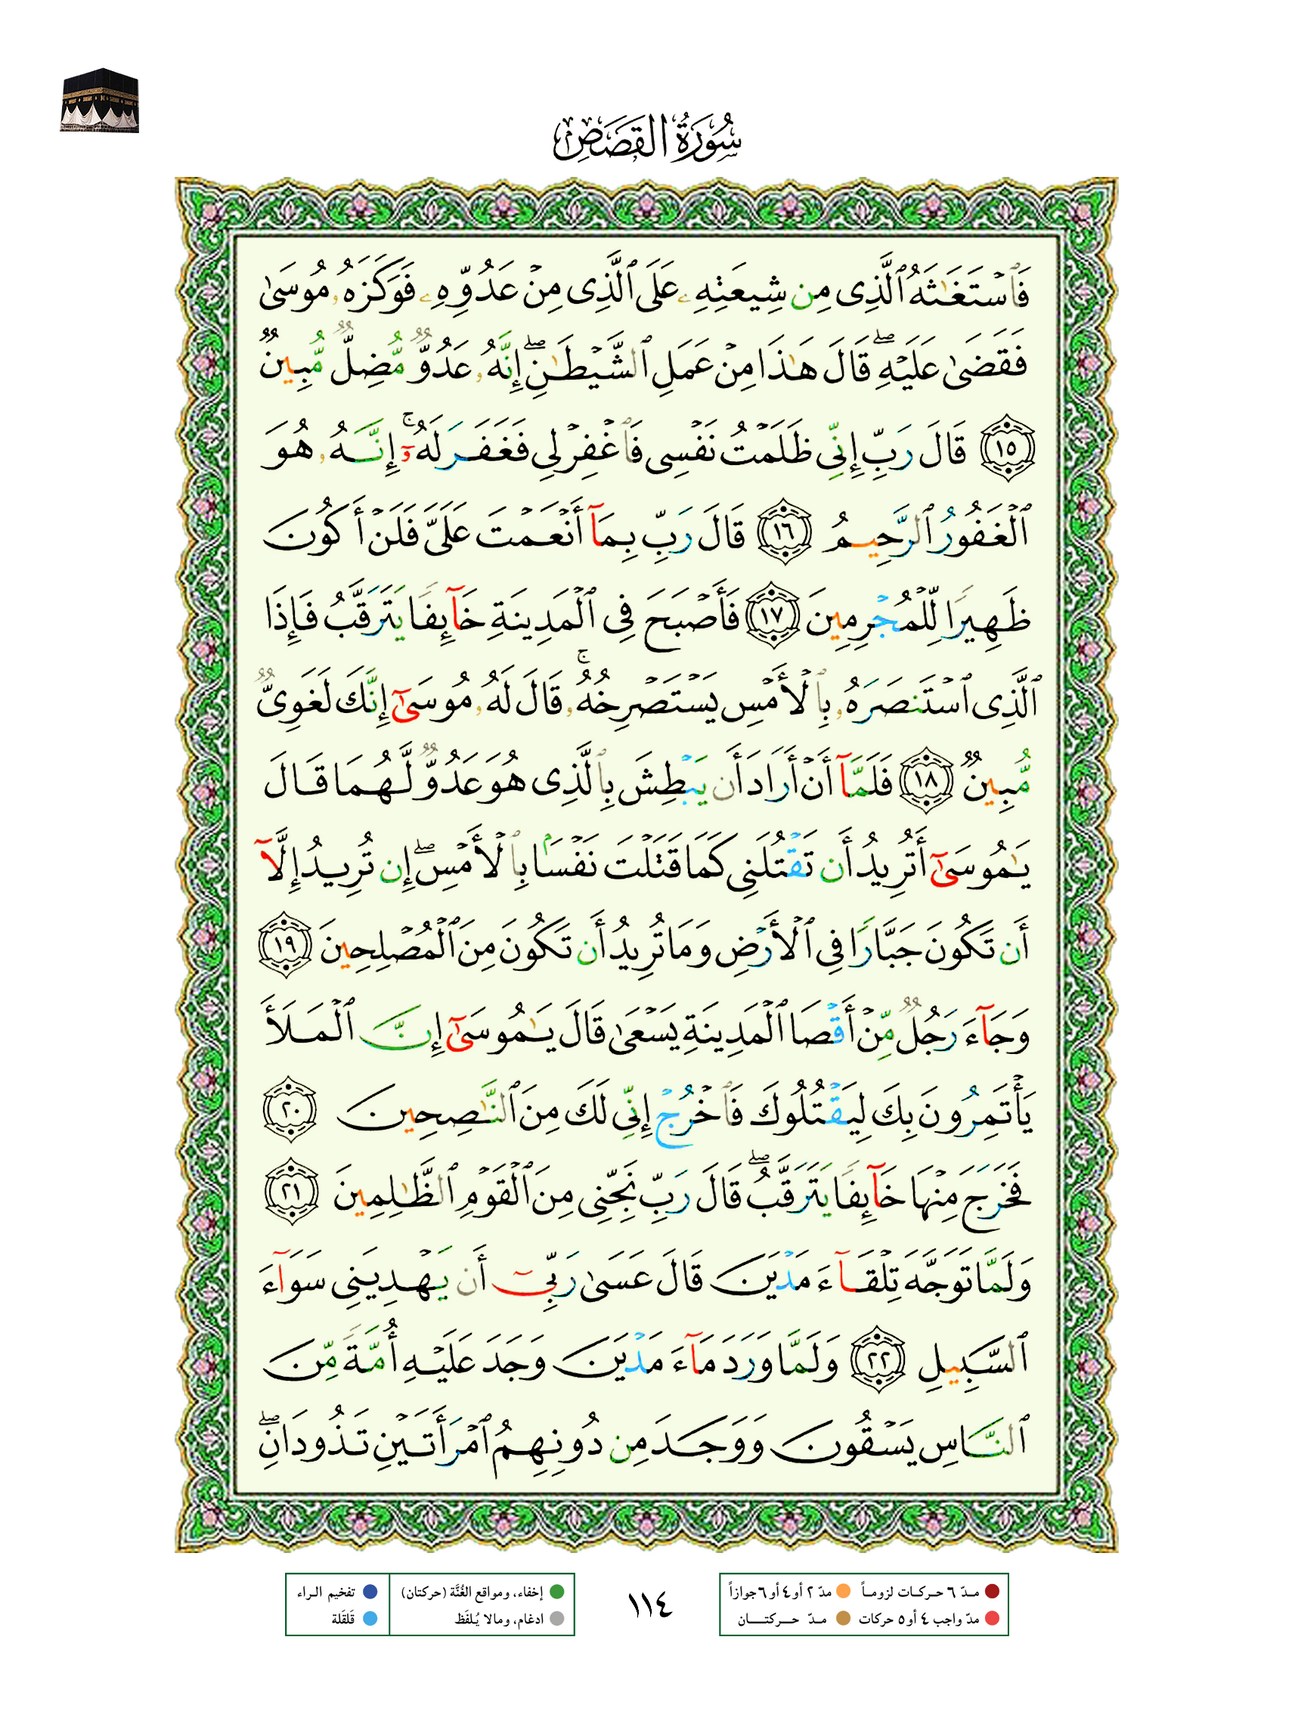 سُورَةُ القَصَصِ
فَٱسۡتَغَٰثَهُ ٱلَّذِى مِن شِيعَتِهِۦ عَلَى ٱلَّذِى مِنۡ عَدُوِّهِۦ فَوَكَزَهُۥ مُوسَىٰ
فَقَضَىٰ عَلَيۡهِۖ قَالَ هَٰذَا مِنۡ عَمَلِ ٱلشَّيۡطَٰنِۖ إِنَّهُۥ عَدُوࣱّ مُّضِلࣱّ مُّبِينࣱ
١٥ قَالَ رَبِّ إِنِّى ظَلَمۡتُ نَفۡسِى فَٱغۡفِرۡ لِى فَغَفَرَ لَهُۥٓۚ إِنَّهُۥ هُوَ
ٱلۡغَفُورُ ٱلرَّحِيمُ ١٦ قَالَ رَبِّ بِمَآ أَنۡعَمۡتَ عَلَىَّ فَلَنۡ أَكُونَ
ظَهِيرࣰا لِّلۡمُجۡرِمِينَ ١٧ فَأَصۡبَحَ فِى ٱلۡمَدِينَةِ خَآئِفࣰا يَتَرَقَّبُ فَإِذَا
ٱلَّذِى ٱسۡتَنصَرَهُۥ بِٱلۡأَمۡسِ يَسۡتَصۡرِخُهُۥۚ قَالَ لَهُۥ مُوسَىٰٓ إِنَّكَ لَغَوِىࣱّ
مُّبِينࣱ ١٨ فَلَمَّآ أَنۡ أَرَادَ أَن يَبۡطِشَ بِٱلَّذِى هُوَ عَدُوࣱّ لَّهُمَا قَالَ
يَٰمُوسَىٰٓ أَتُرِيدُ أَن تَقۡتُلَنِى كَمَا قَتَلۡتَ نَفۡسَۢا بِٱلۡأَمۡسِۖ إِن تُرِيدُ إِلَّآ
أَن تَكُونَ جَبَّارࣰا فِى ٱلۡأَرۡضِ وَمَا تُرِيدُ أَن تَكُونَ مِنَ ٱلۡمُصۡلِحِينَ ١٩
وَجَآءَ رَجُلࣱ مِّنۡ أَقۡصَا ٱلۡمَدِينَةِ يَسۡعَىٰ قَالَ يَٰمُوسَىٰٓ إِنَّ ٱلۡمَلَأَ
يَأۡتَمِرُونَ بِكَ لِيَقۡتُلُوكَ فَٱخۡرُجۡ إِنِّى لَكَ مِنَ ٱلنَّٰصِحِينَ ٢٠
فَخَرَجَ مِنۡهَا خَآئِفࣰا يَتَرَقَّبُۖ قَالَ رَبِّ نَجِّنِى مِنَ ٱلۡقَوۡمِ ٱلظَّٰلِمِينَ ٢١
وَلَمَّا تَوَجَّهَ تِلۡقَآءَ مَدۡيَنَ قَالَ عَسَىٰ رَبِّىٓ أَن يَهۡدِيَنِى سَوَآءَ
ٱلسَّبِيلِ ٢٢ وَلَمَّا وَرَدَ مَآءَ مَدۡيَنَ وَجَدَ عَلَيۡهِ أُمَّةࣰ مِّنَ
ٱلنَّاسِ يَسۡقُونَ وَوَجَدَ مِن دُونِهِمُ ٱمۡرَأَتَيۡنِ تَذُودَانِۖ
مدّ ٦ حركات لزوماً مدّ ٢ أو ٤ أو ٦ جوازاً
مدّ واجب ٤ أو ٥ حركات مدّ حركتان
١١٤
إخفاء، ومواقع الغُنَّة (حركتان) تفخيم الراء
ادغام، ومالا يُلفَظ قلقلة